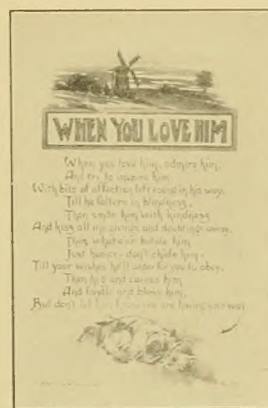 WHEN YOU LOVE HIM
When you love him, admire him,
And try to inspire him
With bits of affection left round in his way.
Till he falters in blindness,
Then smite him with kindness
And kiss all his and doubtings away.
Then whatever betide him
Just humor - don't chide him -
Till your wishes he'll order for you to obey.
Then hug and caress him
And fondle and bless him,
But don't let him know you are having your way